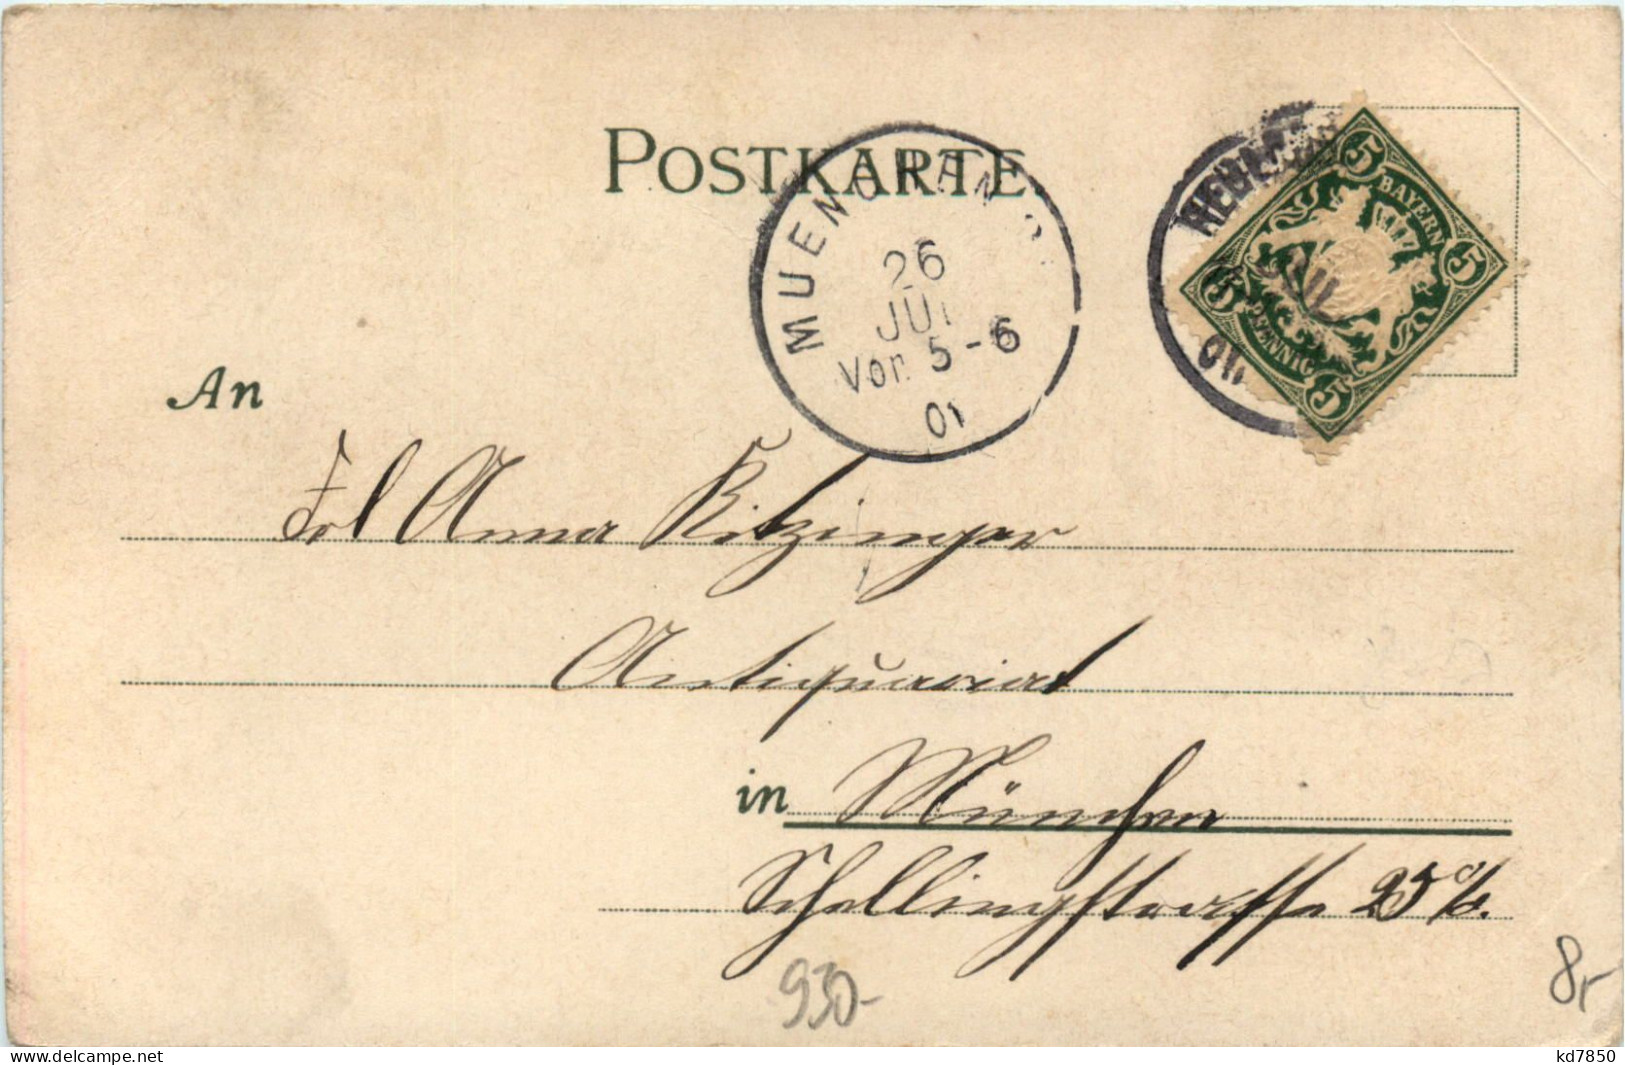 POSTKARTE
MUENCHEN
26
JUL
Vor. 5-6
01
JUL
01
5 BAYERN 5
5 PFENNIG 5
An
Frl Anna Kitzinger
Antiquariat
in München
Schellingstrasse 25
930-
8,-
www.delcampe.net
kd7850